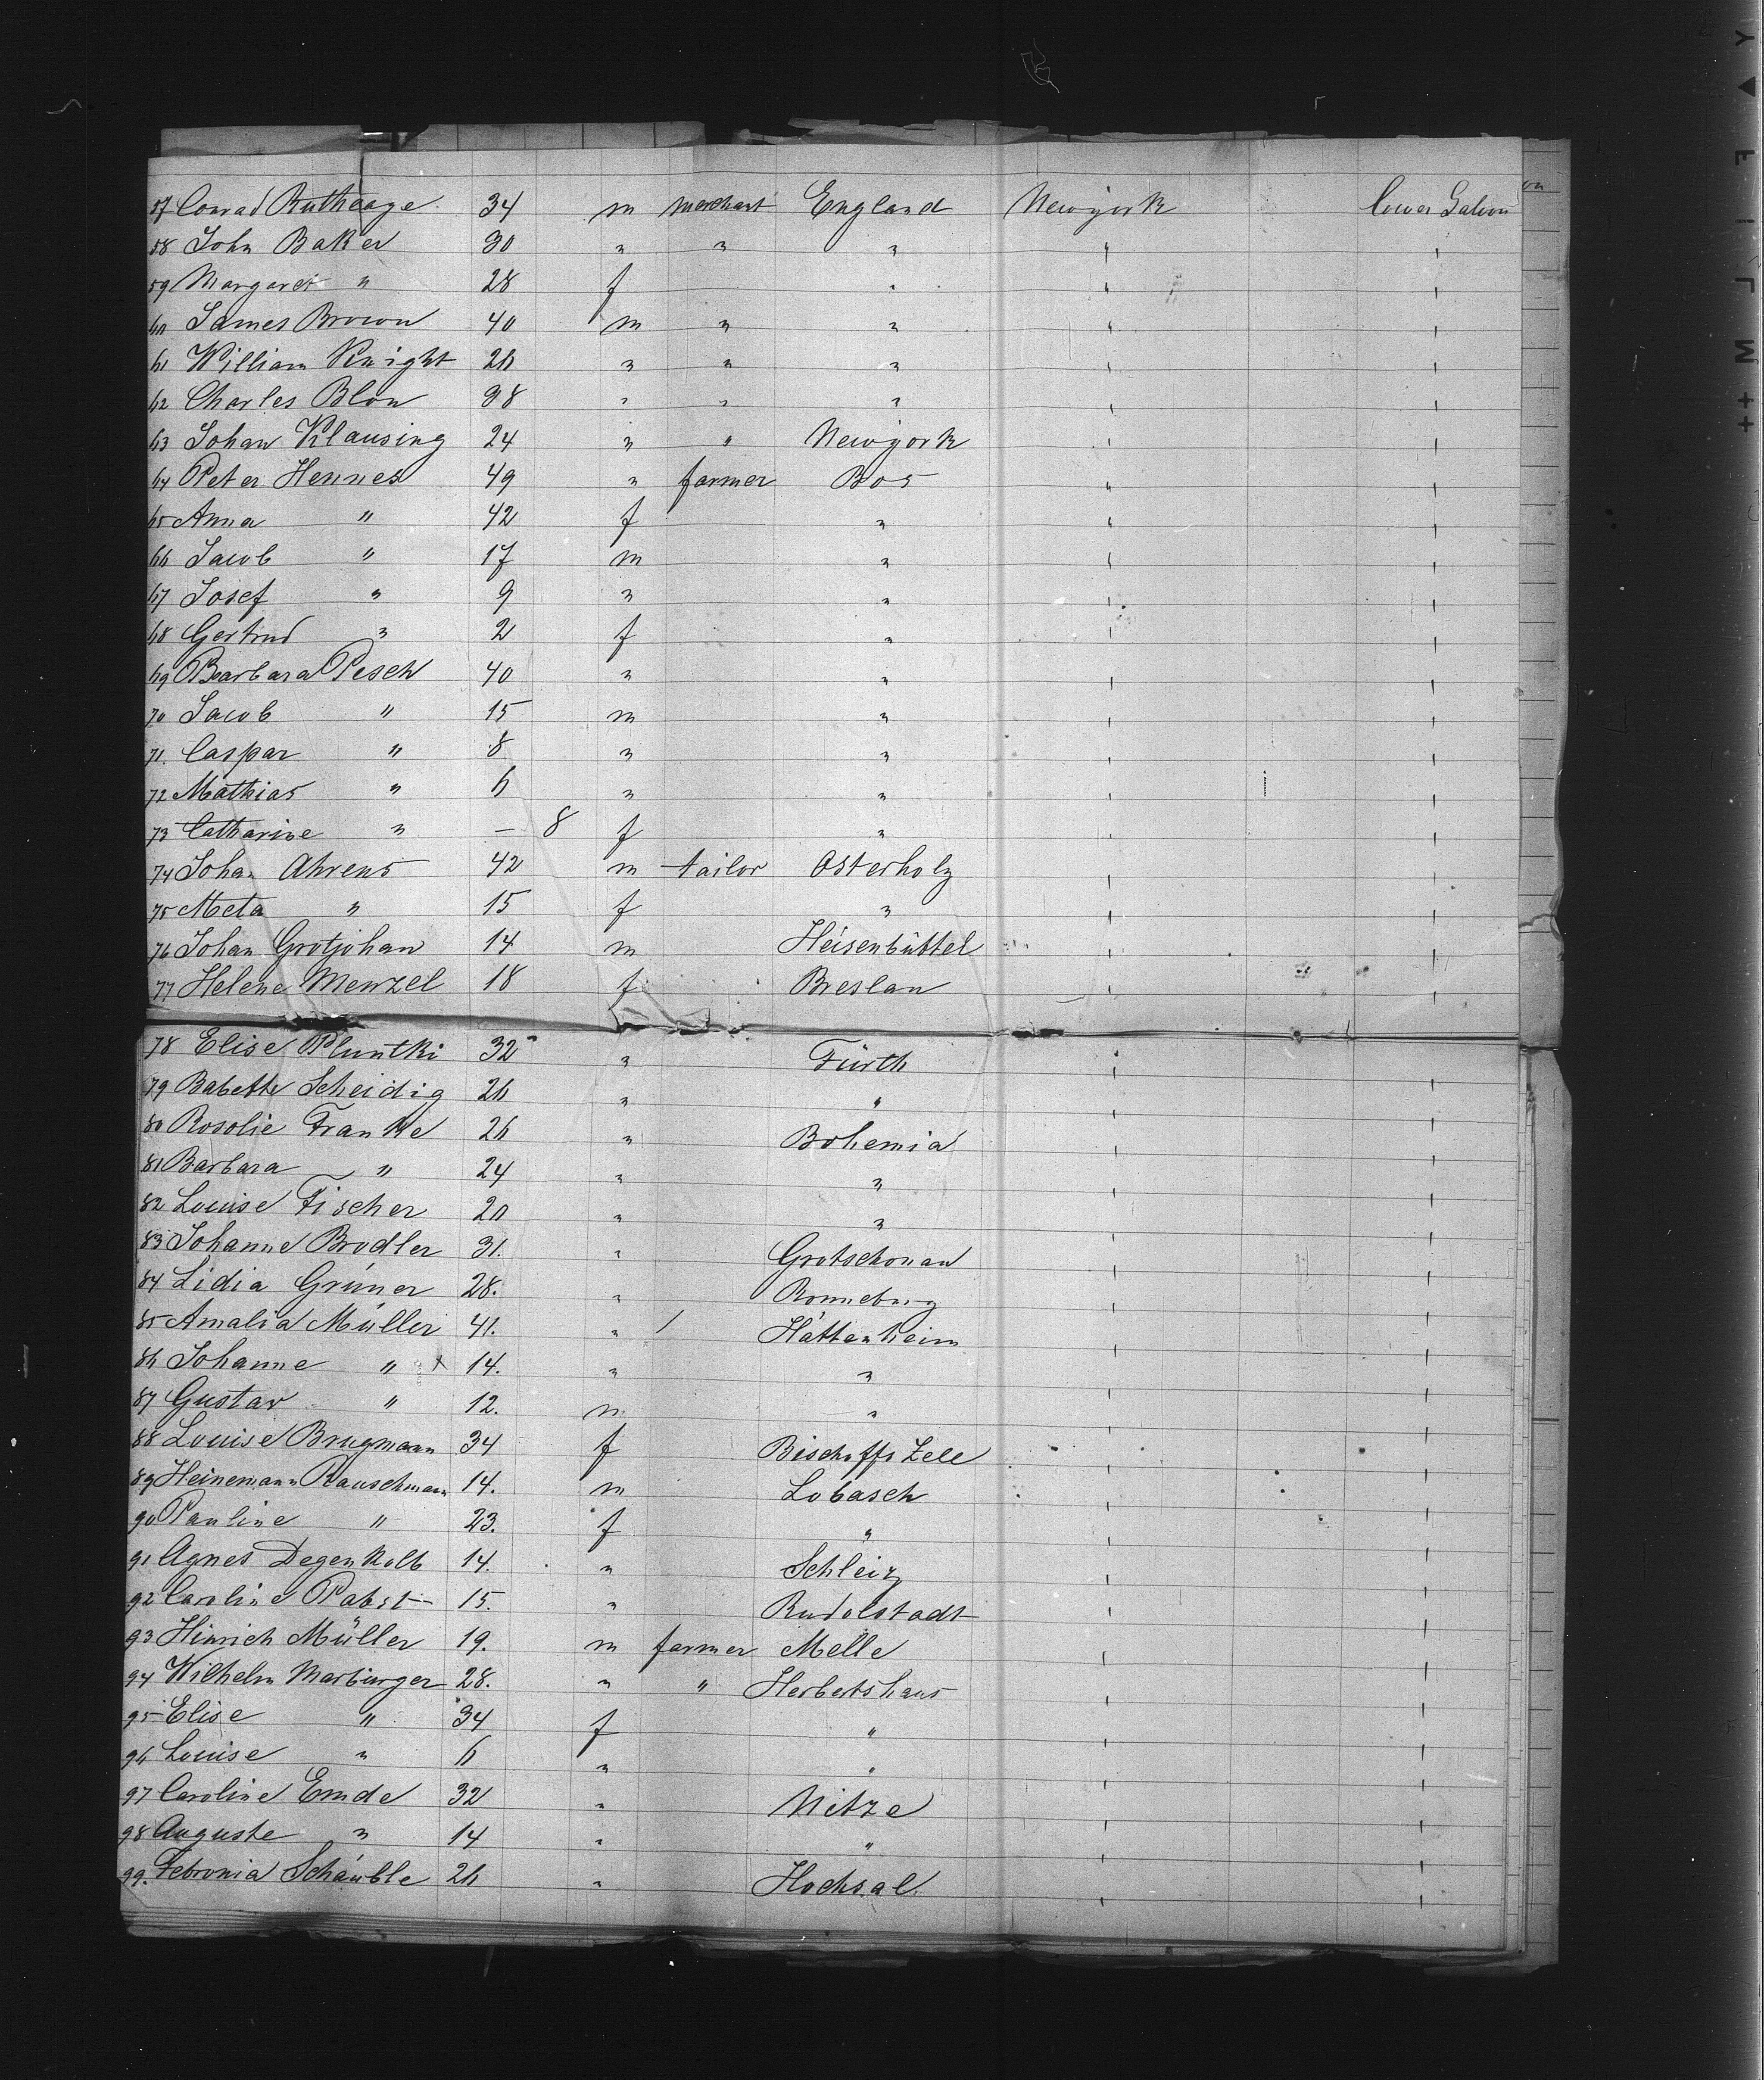 57 Conrad Rutheage 34 m merchant England Newyork lower Saloon
58 John Baker 30 " " " " "
59 Margaret " 28 f " " "
60 James Brown 40 m " " " "
61 William Knight 26 " " " " "
62 Charles Blow 38 " " " " "
63 Johan Klausing 24 " " Newyork " "
64 Peter Hennes 49 " farmer Bos " "
65 Anna " 42 f " " "
66 Jacob " 17 m " " "
67 Josef " 9 " " " "
68 Gertrud " 2 f " " "
69 Barbara Pesch 40 " " " "
70 Jacob " 15 m " " "
71. Caspar " 8 " " " "
72 Mathias " 6 " " " "
73 Catharine " — 8 f " " "
74 Johan Ahrens 42 m tailor Osterholz " "
75 Meta " 15 f " " "
76 Johan Grotjohan 14 m Heisenbüttel " "
77 Helene Menzel 18 f Breslau " "
78 Elise Pluntki 32 " Fürth " "
79 Babette Scheidig 26 " " " "
80 Rosolie Franke 26 " Bohemia " "
81 Barbara " 24 " " " "
82 Louise Fischer 20 " " " "
83 Johanne Brodler 31. " Grotschonau " "
84 Lidia Grüner 28. " Ronneburg " "
85 Amalia Müller 41. " / Hattenheim " "
86 Johanne " x 14. " " " "
87 Gustav " 12. m " " "
88 Louise Brugmann 34 f Bischoffs Zele " "
89 Heinemann Rauschmann 14. m Lobasch " "
90 Pauline " 23. f " " "
91 Agnes Degenkolb 14. " Schleiz " "
92 Caroline Pabst 15. " Rudolstadt " "
93 Hinrich Müller 19. m farmer Melle " "
94 Wilhelm Marburger 28. " " Herbertshaus " "
95 Elise " 34 f " " "
96 Louise " 6 " " " "
97 Caroline Emde 32 " Nitze " "
98 Auguste " 14 " " " "
99. Febronia Schäuble 26 " Hochsal " "